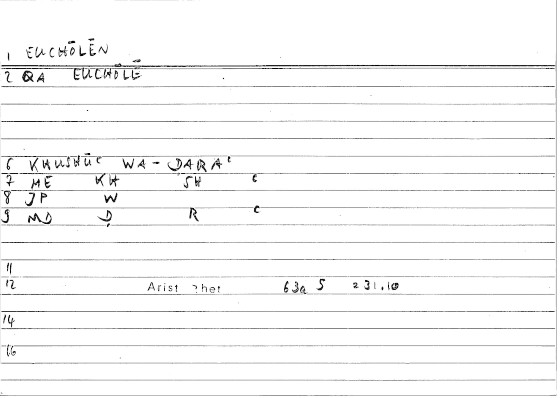 1 EUCHŌLĒN
2 QA EUCHŌLĒ
6 KHUSHŪʿ WA - ḌARAʿ
7 ME KH SH ʿ
8 JP W
9 MD Ḍ R ʿ
11
12 Arist Rhet 63a 5 = 231.10
14
16